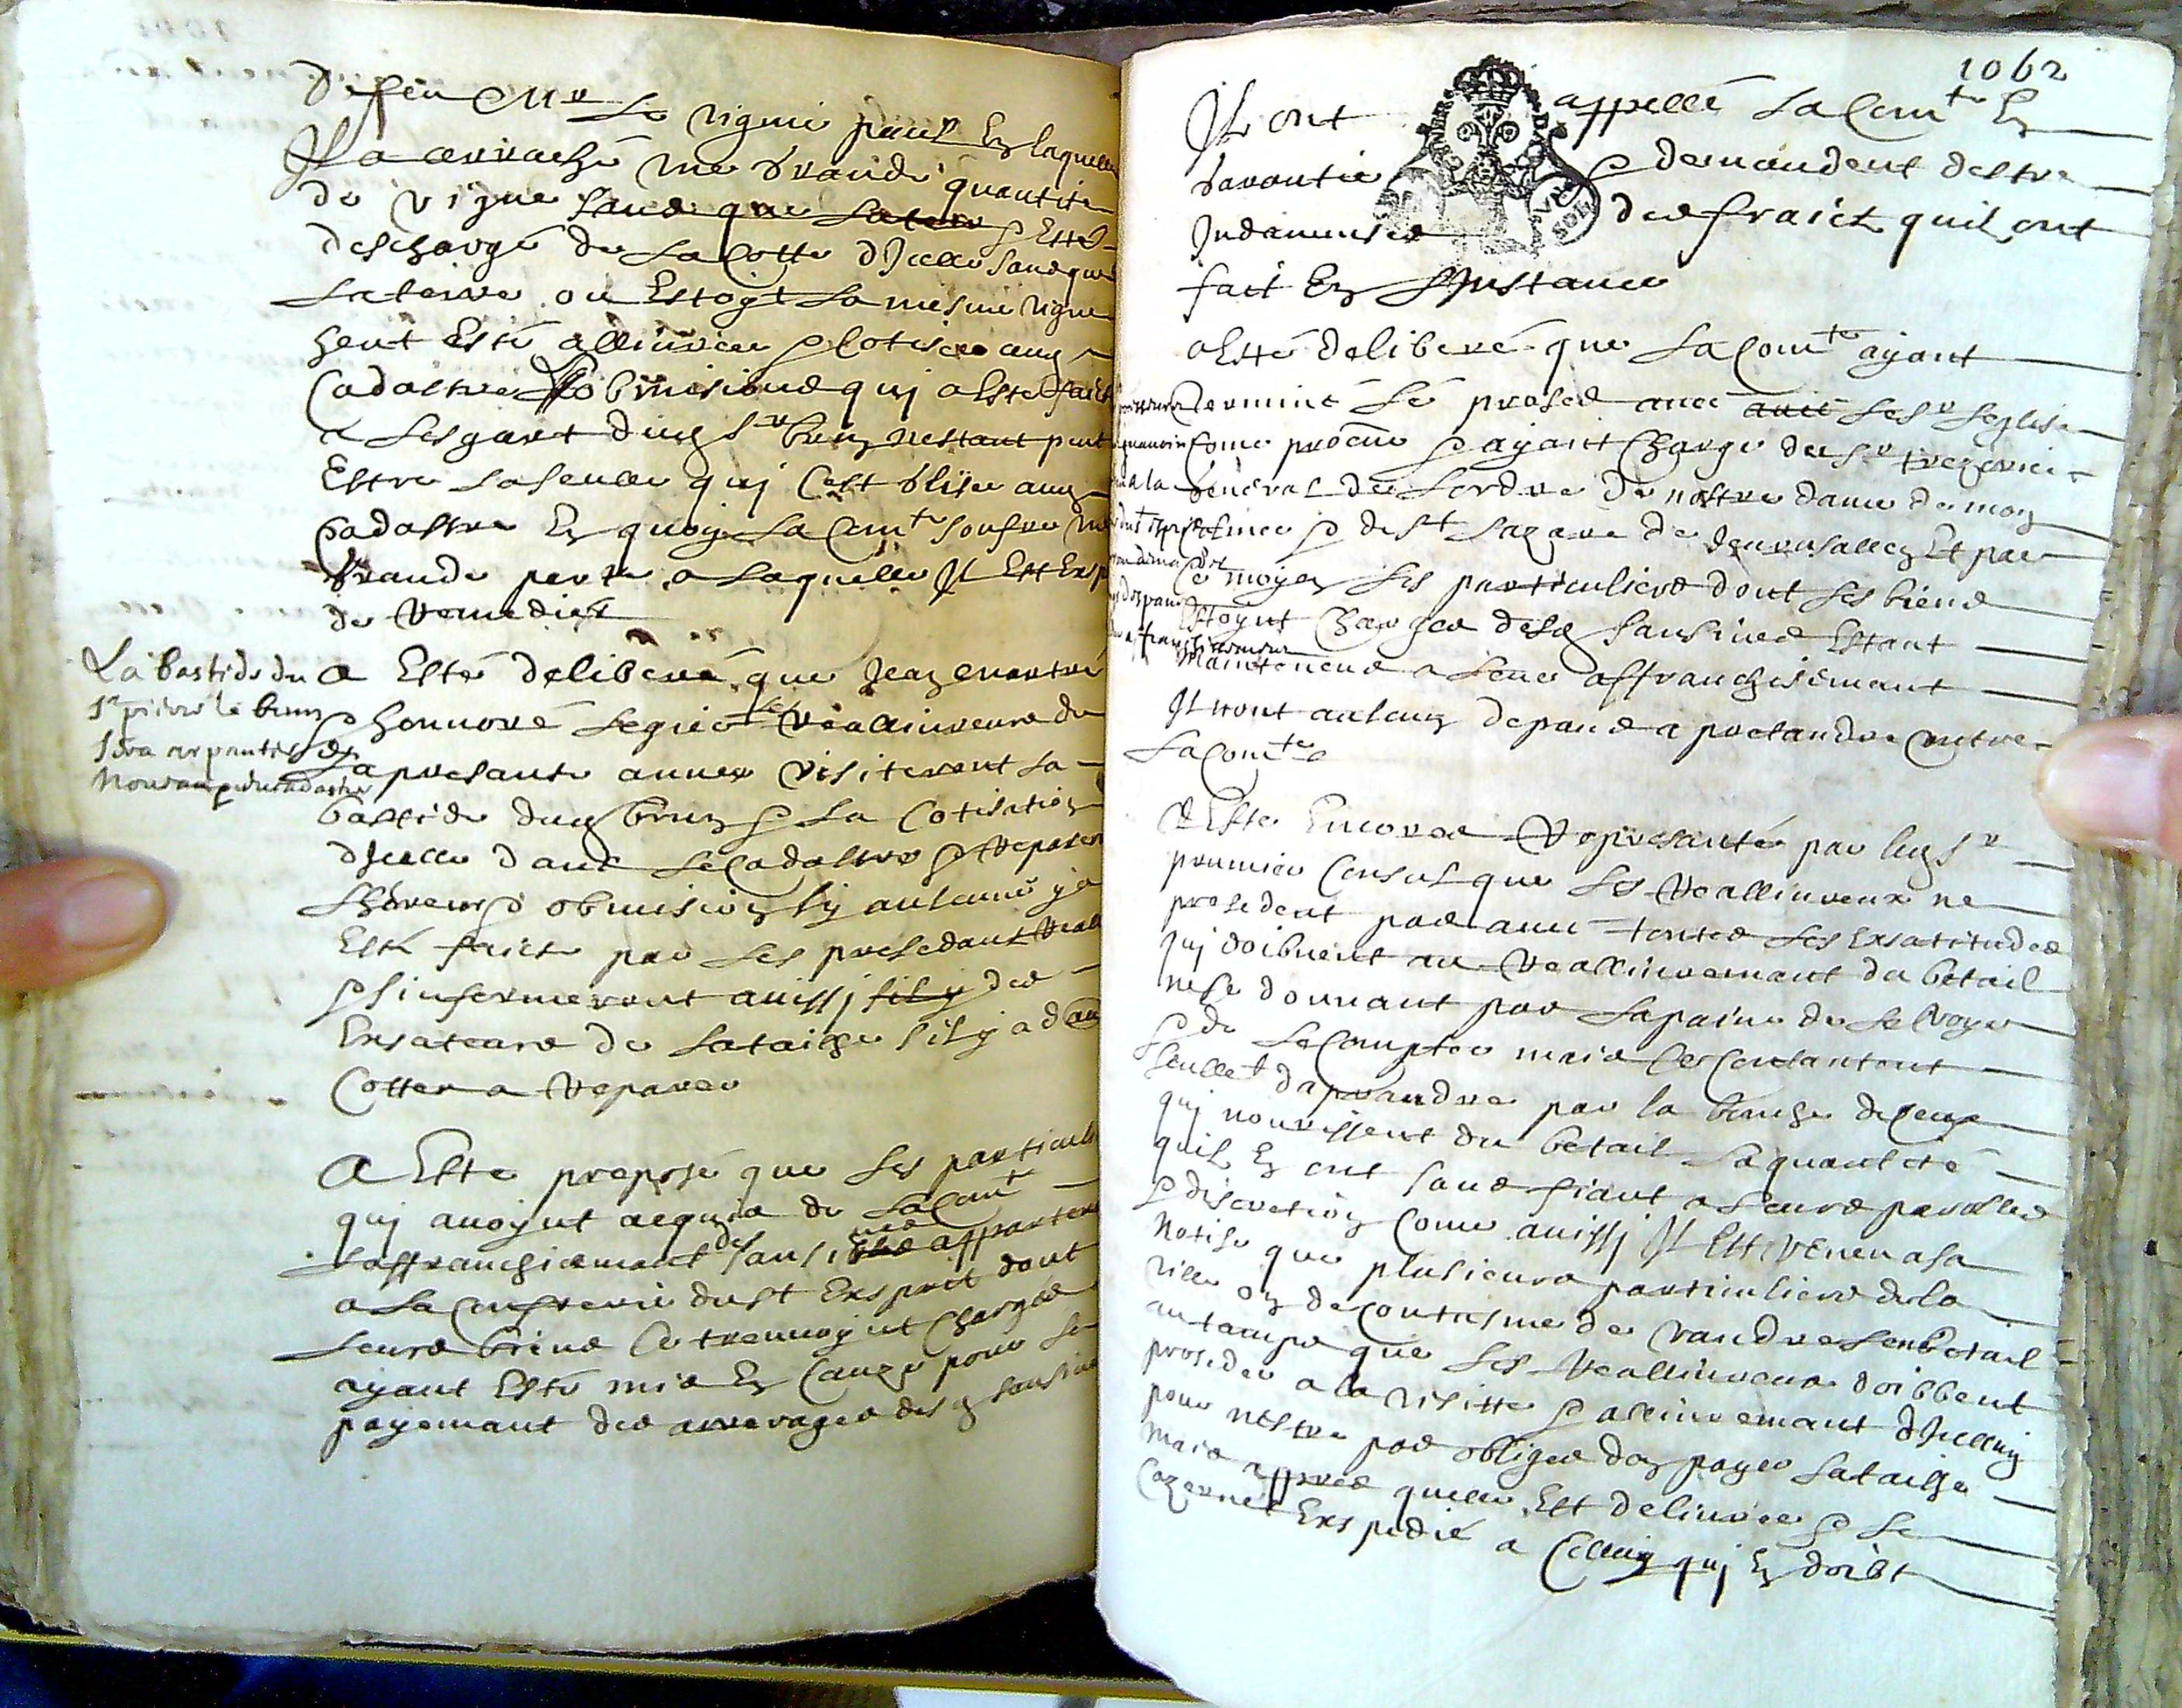 de feu Mr Le viguier paul En laquelle
Il a arraché une Grande quantité
de vigne sans que La terre & Esté
deschargé de La Cotte d'Icelle sans que
La terre ou Estoyt La mesme vigne
heut Esté allivrée & cotisée aud
Cadastre obmisions quj a Esté faict
a Lesgart dud Sr brun nestant peut
Estre La seulle quj cest Glisee aud
Cadastre En quoy La Comte soufre une
Grande perte a Laquelle Il Est
de Remedier
La bastide du
Sr pierre le brun
sera arpantée &
A Esté deliberé que Jean
& honnoré Segnier Les Reallivreurs de
La presante année visiteront La
bastide dud brun & La Cotisation
dIcelle dans Le Cadastre & Reparer
Lherreur & obmision sy aulcune y a
Esté faicte par Les presedant
& sinformeront aussj sil y des
Exsateurs de La taihe s'il y a
Cottes a Reparer
A Este proposé que Les particuliers
quj avoynt acquis de La Comte
Laffranchisemant des sansives appartenant
a La Confrerie du St Exsprit dont
Leurs biens ce treuvoynt Chargés
ayant Esté mis En Cauze pour Le
payemant des arrerages desd sansives
1062
Ils ont appellé La Comte En
Garantie & demandent destre
Indamnisés des fraicts quils ont
fait En LInstance
A Esté deliberé que La Comte ayant
terminé Le prosés avec avec Le Sr
Come & ayant Charge du Sr trezorier
General de Lordre de nostre dame de mon
& de St Lazare de Jerusallem Et par
Ce moyen Les particuliers dont Les biens
Estoynt Chargés desd sansives Estant
Maintenus a Leur affranchisemant
Il nont aulcun depans a pretandre contre
La Comte
A Esté Encores Represanté par led Sr
premier Consul que Les Reallivreurs ne
prosedent pas avec toutes Les Exsatitudes
quj doibvent au Reallivremant du betail
ne se donnant pas La paine de Le voyer
& de Le Compter mais Ce Contantent
seullet daprandre par la bouche de ceux
quj nourissent du betail La quantité
quils En ont sans fiant a Leurs parolles
& discretion Come aussj Il Est venu a sa
Notise que plusieurs particuliers de la
ville on de Coutusme de vandre Leur betail
au tamps que Les Reallivreurs doibvent
proseder a la visitte & allivremant dIcelluy
pour nestre pas obligés den payer La taihe
Mais appres quelle Est delivrée & Le
Cazernet Exspedié a Celluy quj En doibt